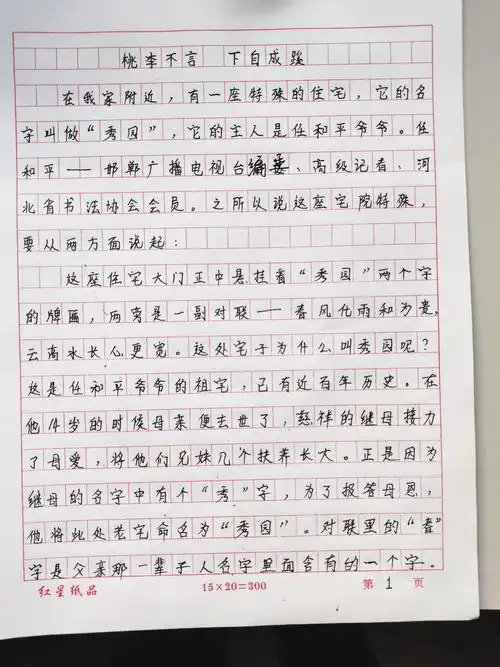 桃李不言 下自成蹊
在我家附近，有一座特殊的住宅，它的名
字叫做“秀园”，它的主人是任和平爷爷。任
和平——邯郸广播电视台编委、高级记者、河
北省书法协会会员。之所以说这座宅院特殊，
要从两方面说起：
这座住宅大门正中悬挂着“秀园”两个字
的牌匾，两旁是一副对联——春风化雨和为贵，
云高水长心更宽。这处宅子为什么叫秀园呢？
这是任和平爷爷的祖宅，已有近百年历史。在
他14岁的时候母亲便去世了，慈祥的继母接力
了母爱，将他们兄妹几个扶养长大。正是因为
继母的名字中有个“秀”字，为了报答母恩，
他将此处老宅命名为“秀园”。对联里的“春”
字是父亲那一辈子人名字里面含有的一个字。
红星纸品 15×20=300 第 1 页